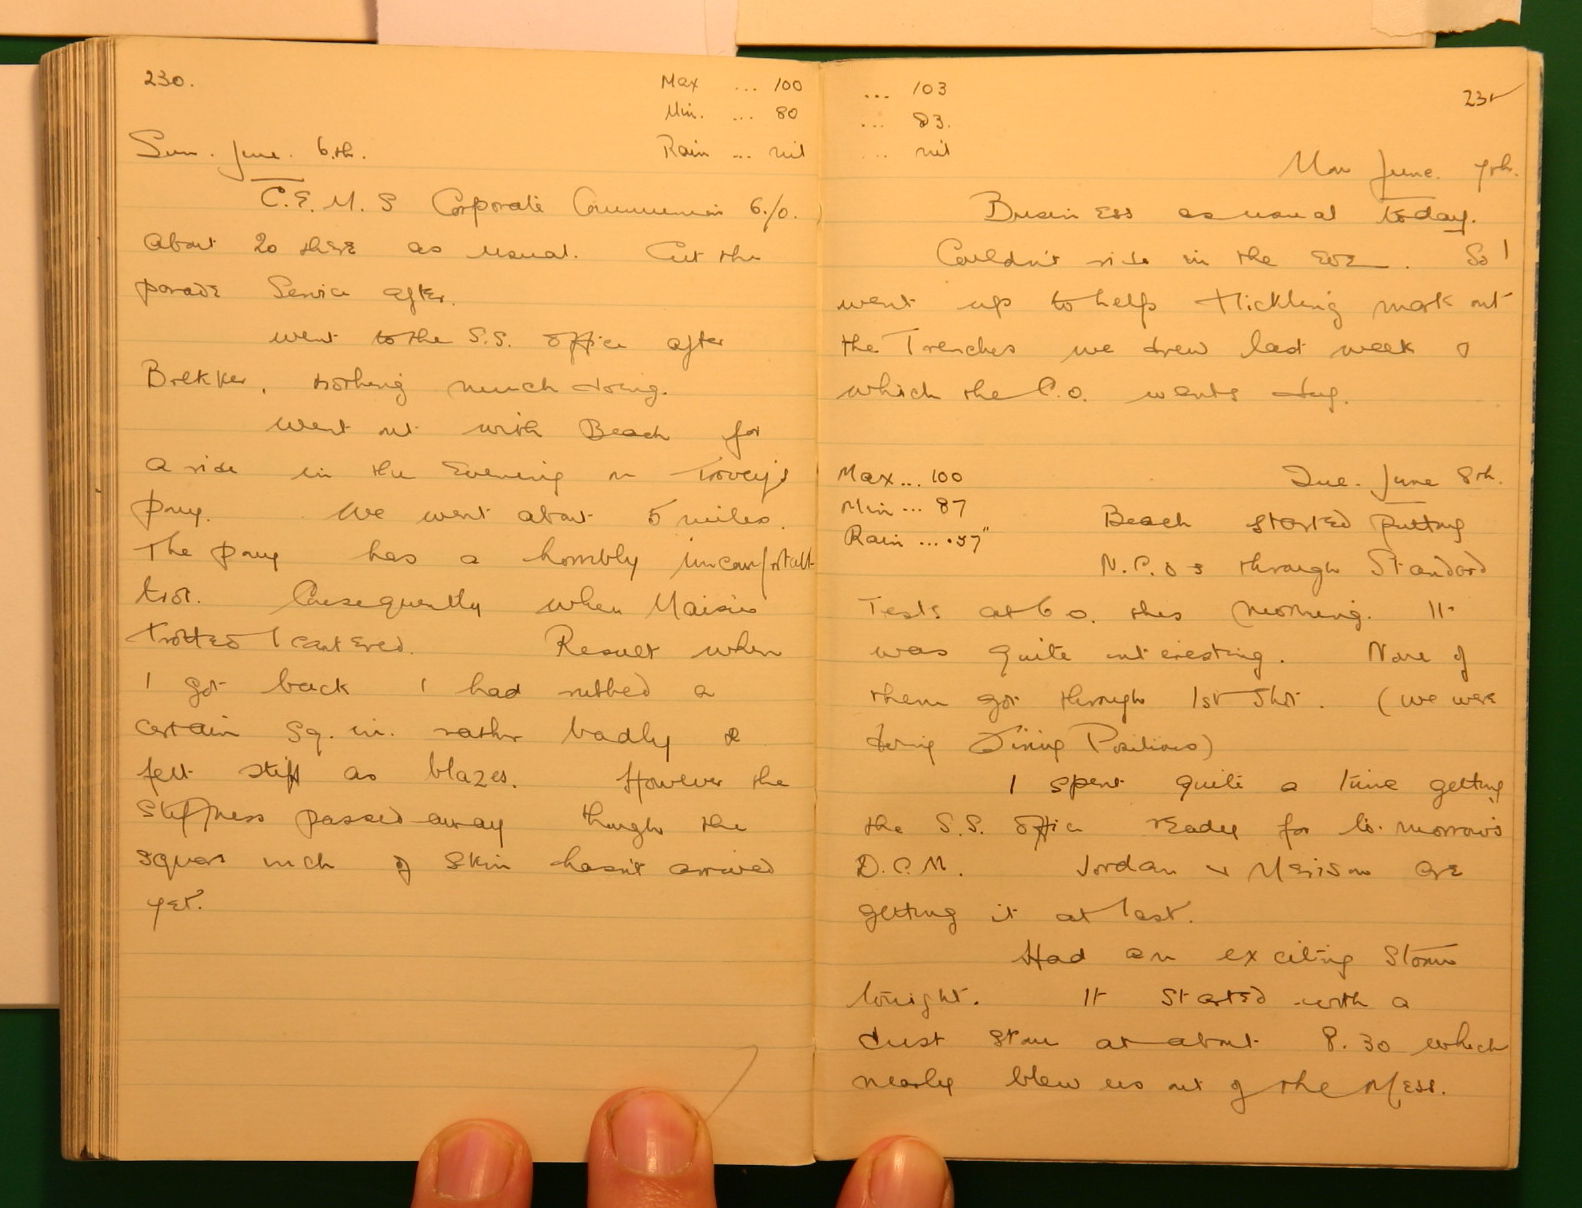 230.
Max ... 100
Min. ... 80
Rain ... nil
Sun. June. 6.th.
C.E.M.S Corporate Communion 6.10.
about 20 there as usual. Cut the
parade Service after.
Went to the S.S. office after
Brekker, nothing much doing.
Went out with Beach for
a ride in the Evening on Tovey's
pony. We went about 5 miles.
The pony has a horribly uncomfortable
trot. Consequently when Maisie
trotted I cantered. Result when
I got back I had rubbed a
certain sq. in. rather badly &
felt stiff as blazes. However the
stiffness passed away though the
square inch of skin hasn't arrived
yet.
... 103
... 83.
... nil
231
Mon June. 7th.
Business as usual today.
Couldn't ride in the eve. So I
went up to help Hickling mark out
the Trenches we drew last week &
which the C.O. wants dug.
Max... 100
Min ... 87
Rain ... .57"
Tue. June 8th.
Beach started putting
N.C.Os through Standard
Tests at 6 o. this morning. It
was quite interesting. None of
them got through 1st shot. (We were
doing Firing Positions)
I spent quite a time getting
the S.S. office ready for to-morrow's
D.C.M. Jordan & are
getting it at last.
Had an exciting storm
tonight. It started with a
dust storm at about 8.30 which
nearly blew us out of the Mess.